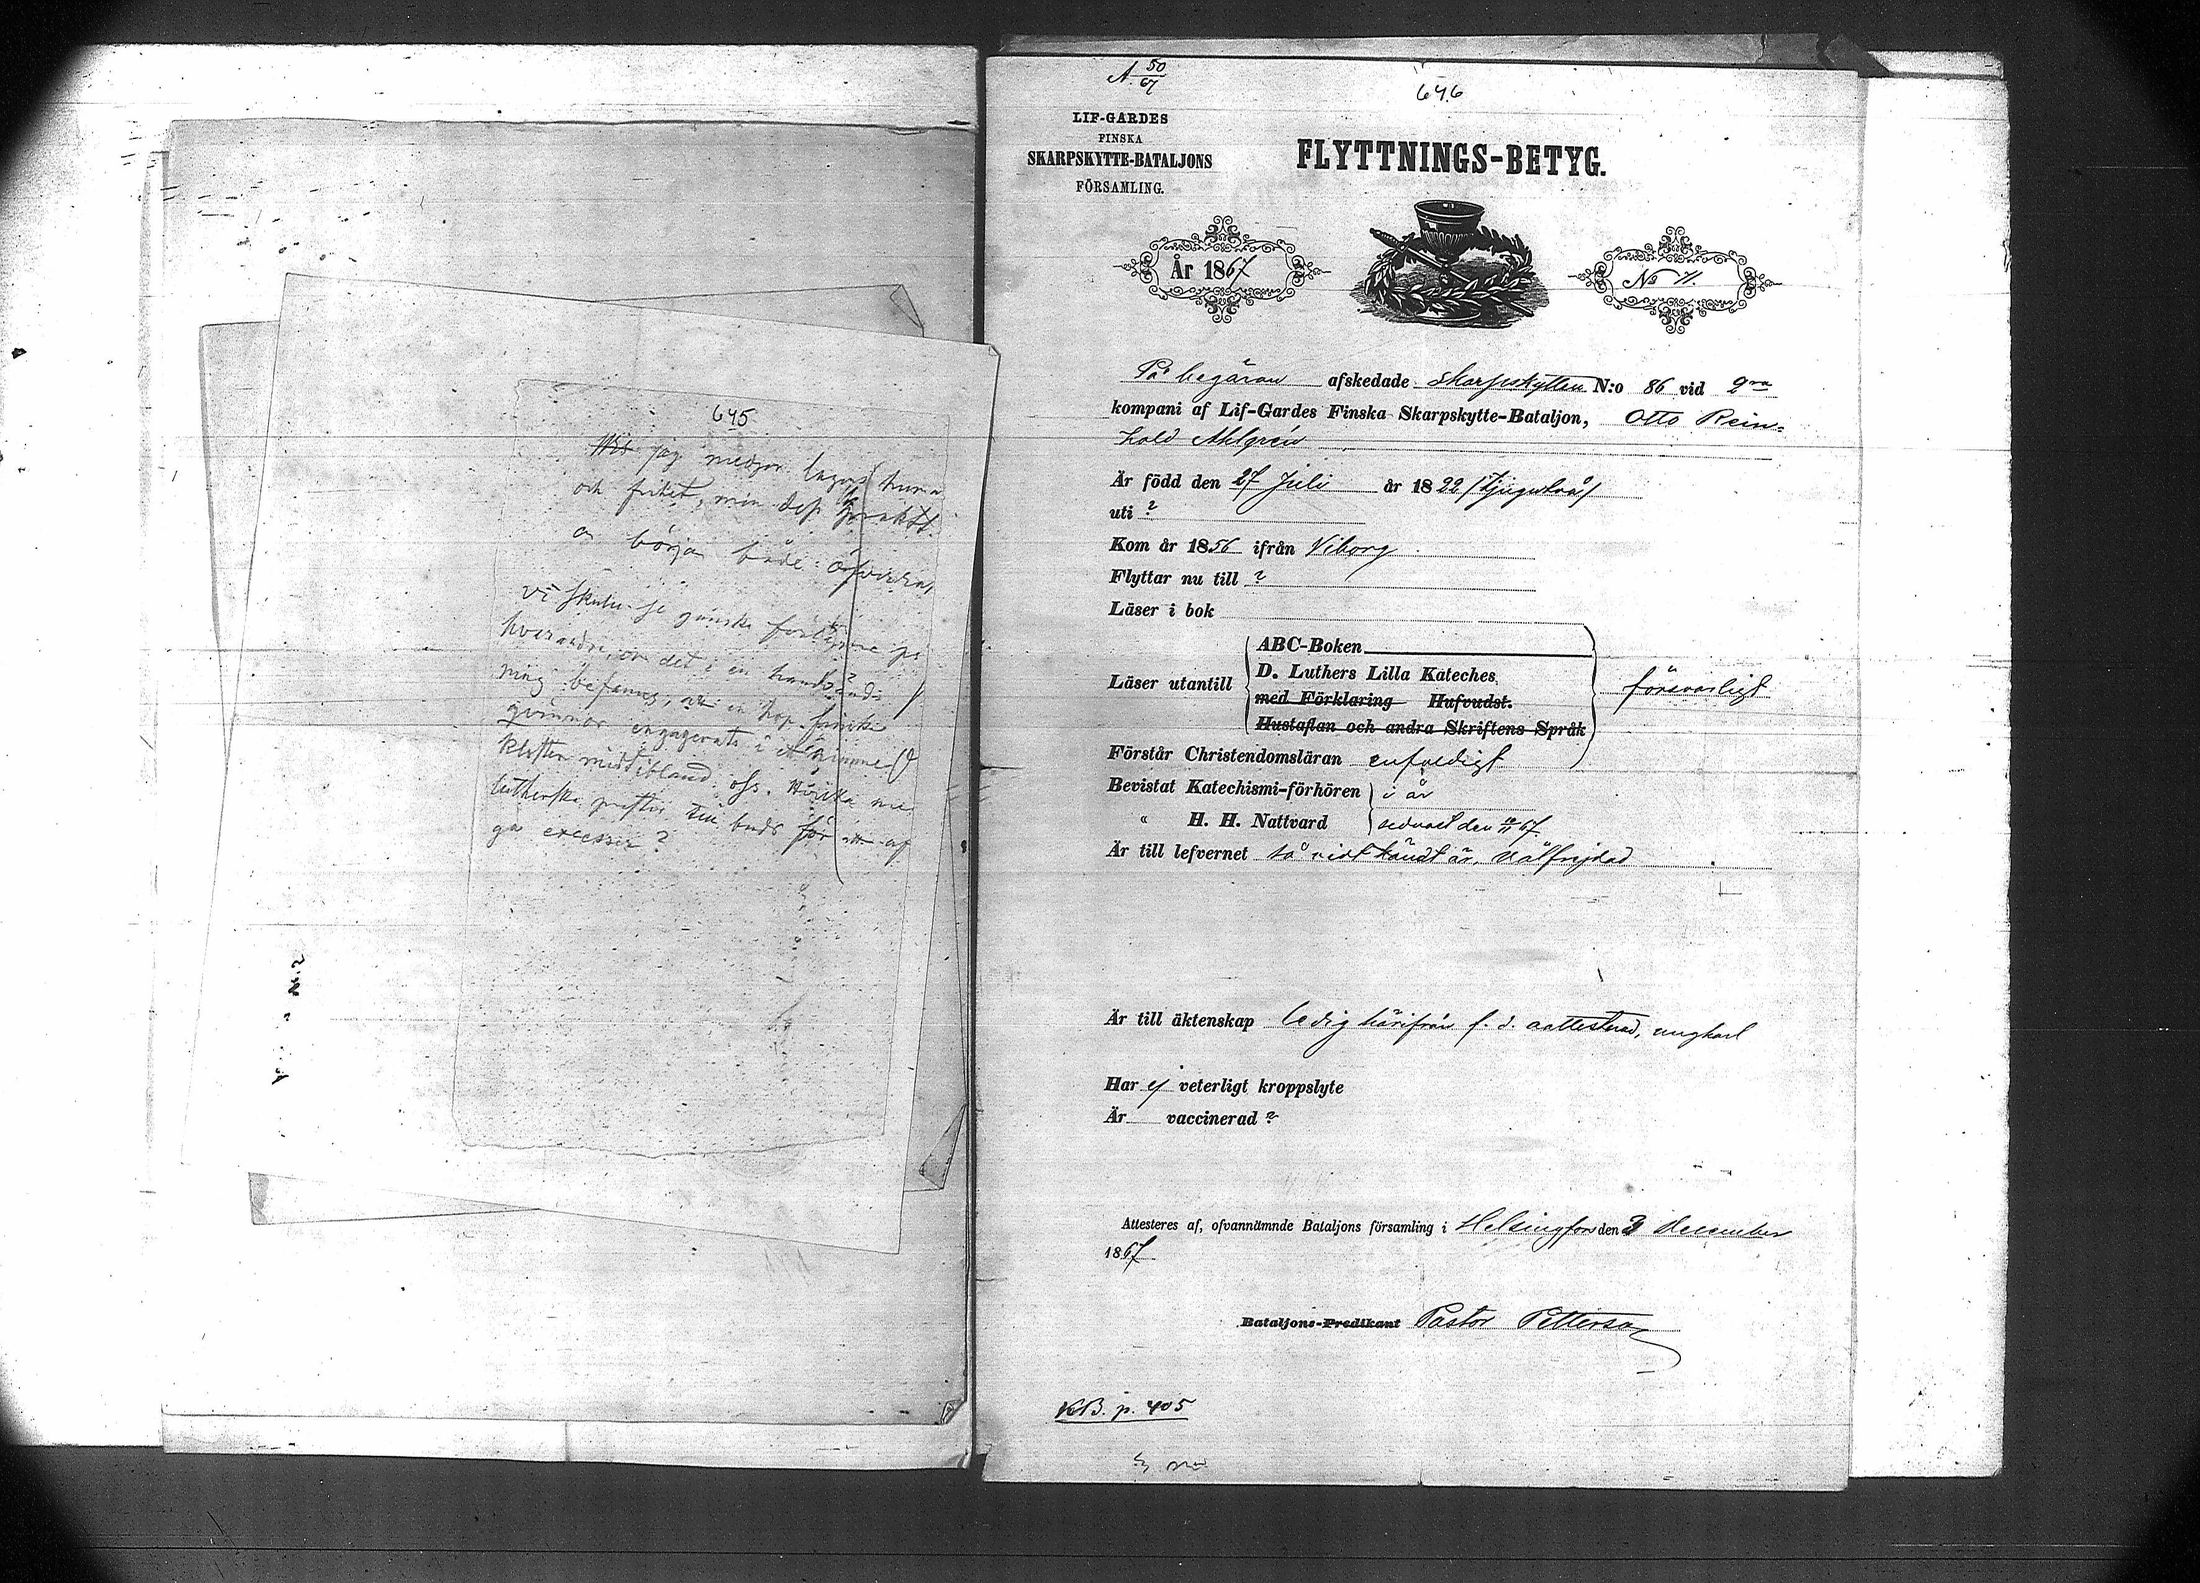 645
jag medger lagens
och frihet, min
börja både
vi skulle se ganska
hvarandra, om det i en
ning befanns, att en hop finska
qvinnor engagerats i
kloster midtibland oss.
lutherska prester till buds för
ga excesser?
A. 50/67
646
LIF-GARDES
FINSKA
SKARPSKYTTE-BATALJONS
FÖRSAMLING.
FLYTTNINGS-BETYG.
År 1867
No 11.
På begäran afskedade Skarpskytten N:o 86 vid 2ra
kompani af Lif-Gardes Finska Skarpskytte-Bataljon, Otto Rein=
hold Ahlgrén
Är född den 27 Juli år 1822 /tjugutvå/
uti ?
Kom år 1856 ifrån Viborg.
Flyttar nu till ?
Läser i bok
ABC-Boken
D. Luthers Lilla Kateches
Läser utantill försvarligt
med Förklaring Hufvudst.
Hustaflan och andra Skriftens Språk
Förstår Christendomsläran enfaldigt
Bevistat Katechismi-förhören i år
" H. H. Nattvard sednast den 67.
Är till lefvernet så vidt kändt är, välfrejdad
Är till äktenskap ledig härifrån f. d. ungkarl
Har ej veterligt kroppslyte
Är vaccinerad ?
Attesteres af, ofvannämnde Bataljons församling i Helsingfors den 3 December
1867
Bataljons-Predikant Pastor Petterson
KB. p. 405